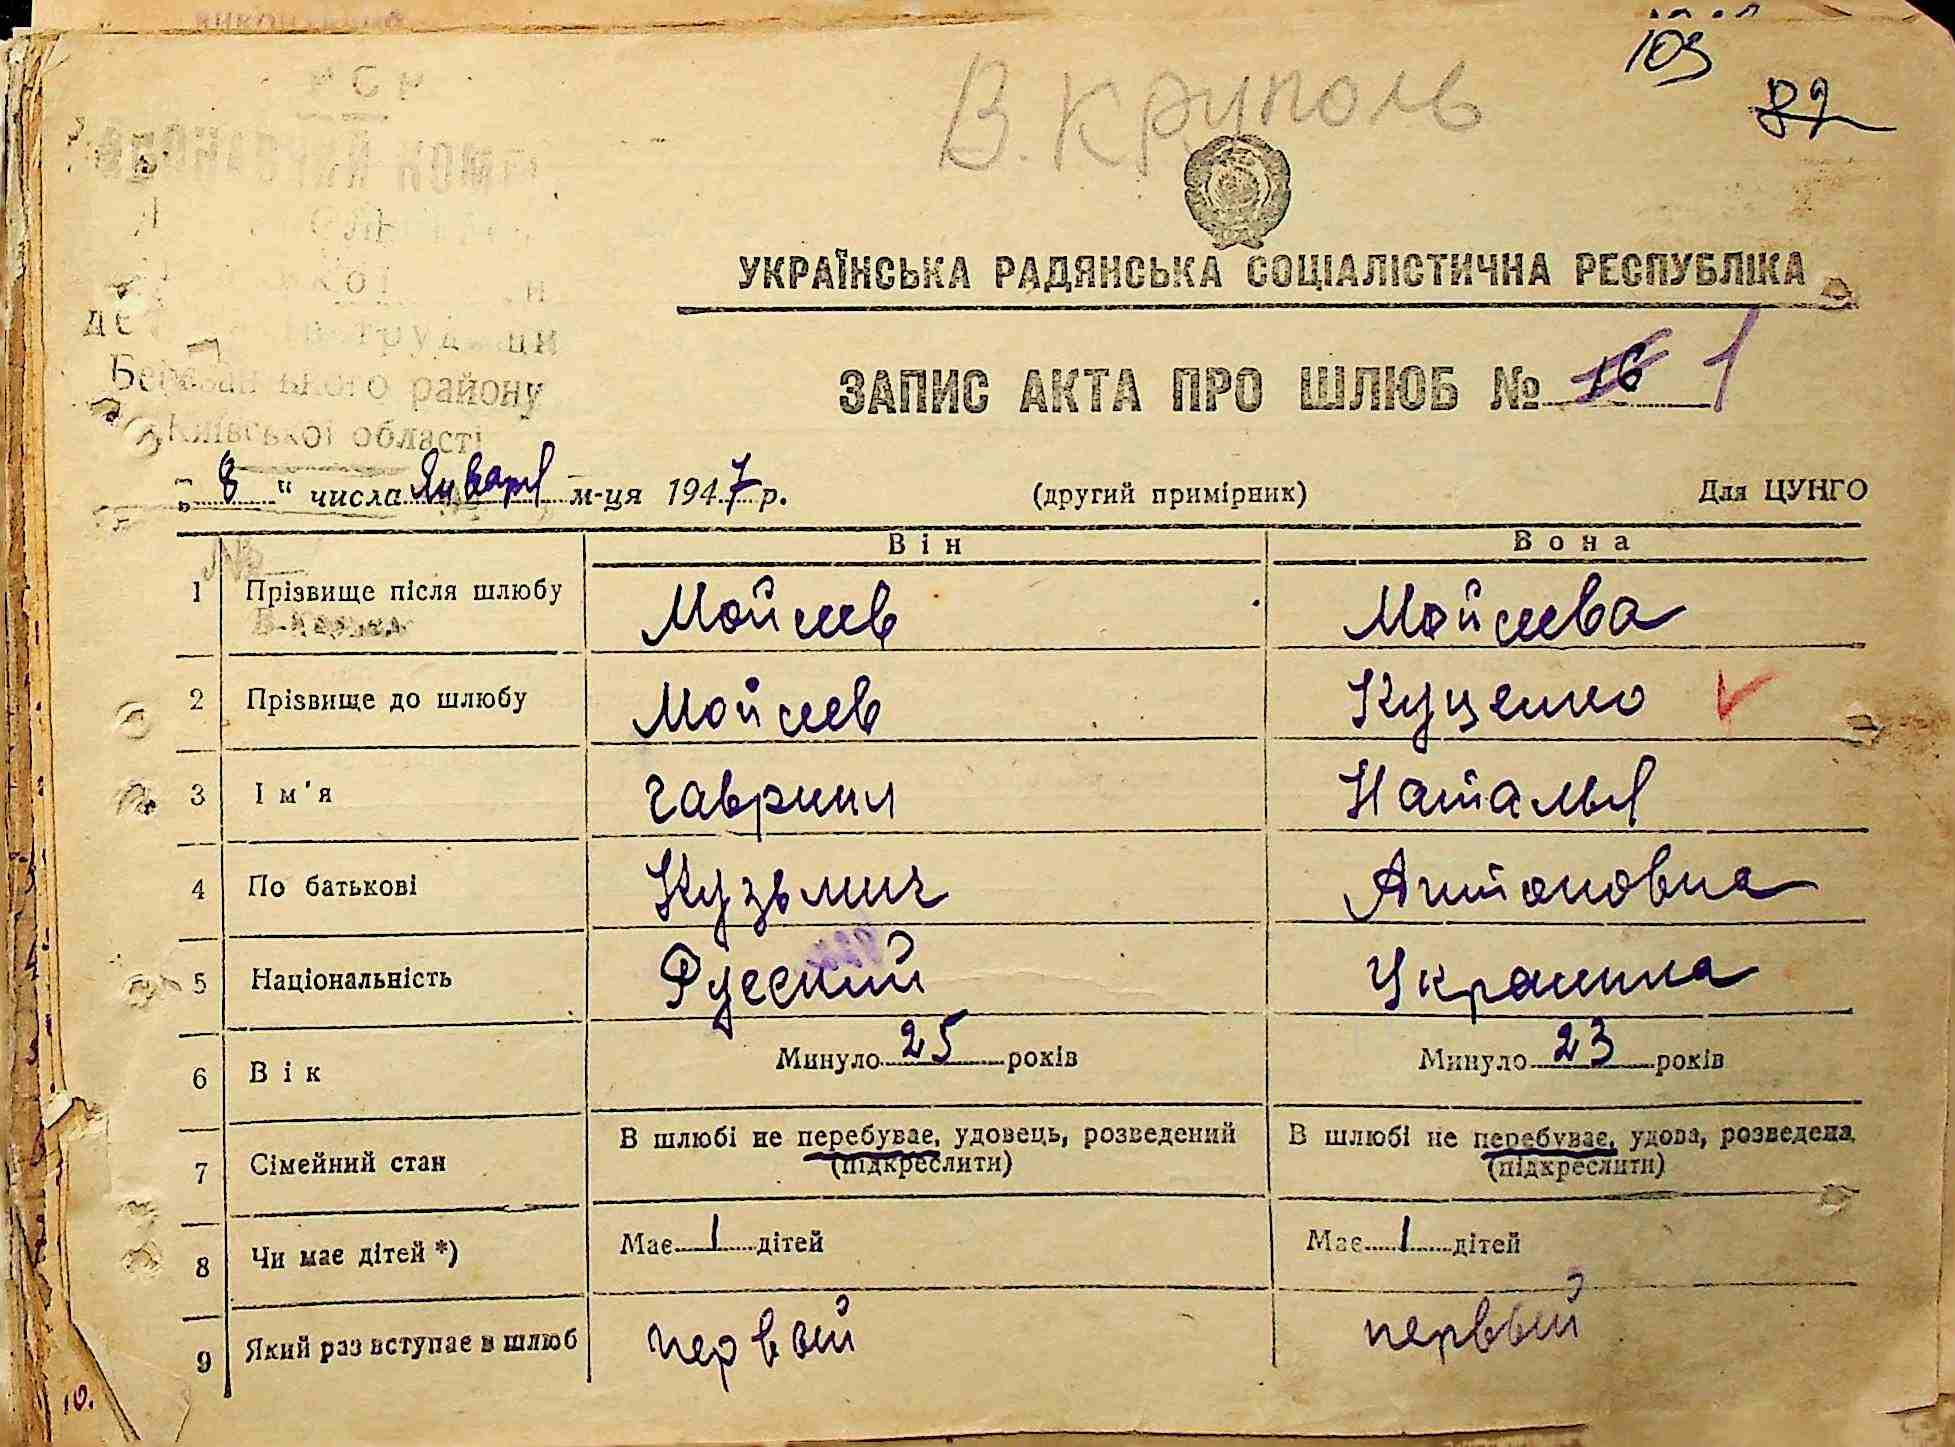 103
В. Круполь
УКРАЇНСЬКА РАДЯНСЬКА СОЦІАЛІСТИЧНА РЕСПУБЛІКА
району
Київської області
ЗАПИС АКТА ПРО ШЛЮБ № 16 1
„ 8 “ числа Января м-ця 1947 р. (другий примірник) Для ЦУНГО
Він Вона
1 Прізвище після шлюбу Мойсеев Мойсеева
2 Прізвище до шлюбу Мойсеев Куценко
3 Ім'я Гавриил Наталья
4 По батькові Кузьмич Антоновна
5 Національність Русский Украинка
6 Вік Минуло 25 років Минуло 23 років
7 Сімейний стан В шлюбі не перебуває, удовець, розведений (підкреслити) В шлюбі не перебуває, удова, розведена (підкреслити)
8 Чи має дітей *) Має 1 дітей Має 1 дітей
9 Який раз вступає в шлюб первый первый
10.